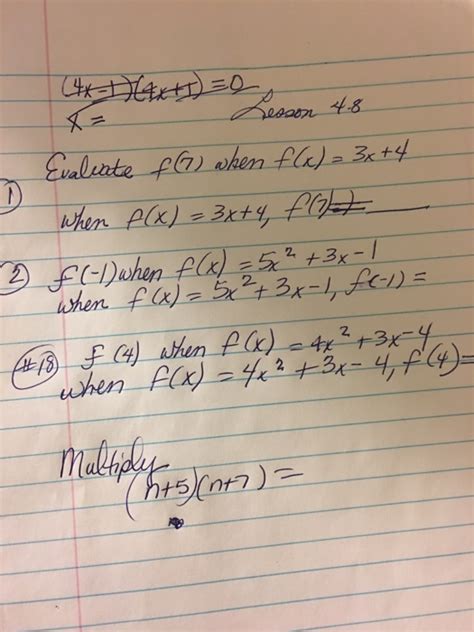 (4x-1)(4x+1)=0
x = Lesson 4.8
1 Evaluate f(7) when f(x) = 3x+4
when f(x) = 3x+4, f(7)=
2 f(-1) when f(x) = 5x²+3x-1
when f(x) = 5x²+3x-1, f(-1) =
#18 f(4) when f(x) = 4x²+3x-4
when f(x) = 4x²+3x-4, f(4)=
Multiply
(n+5)(n+7) =